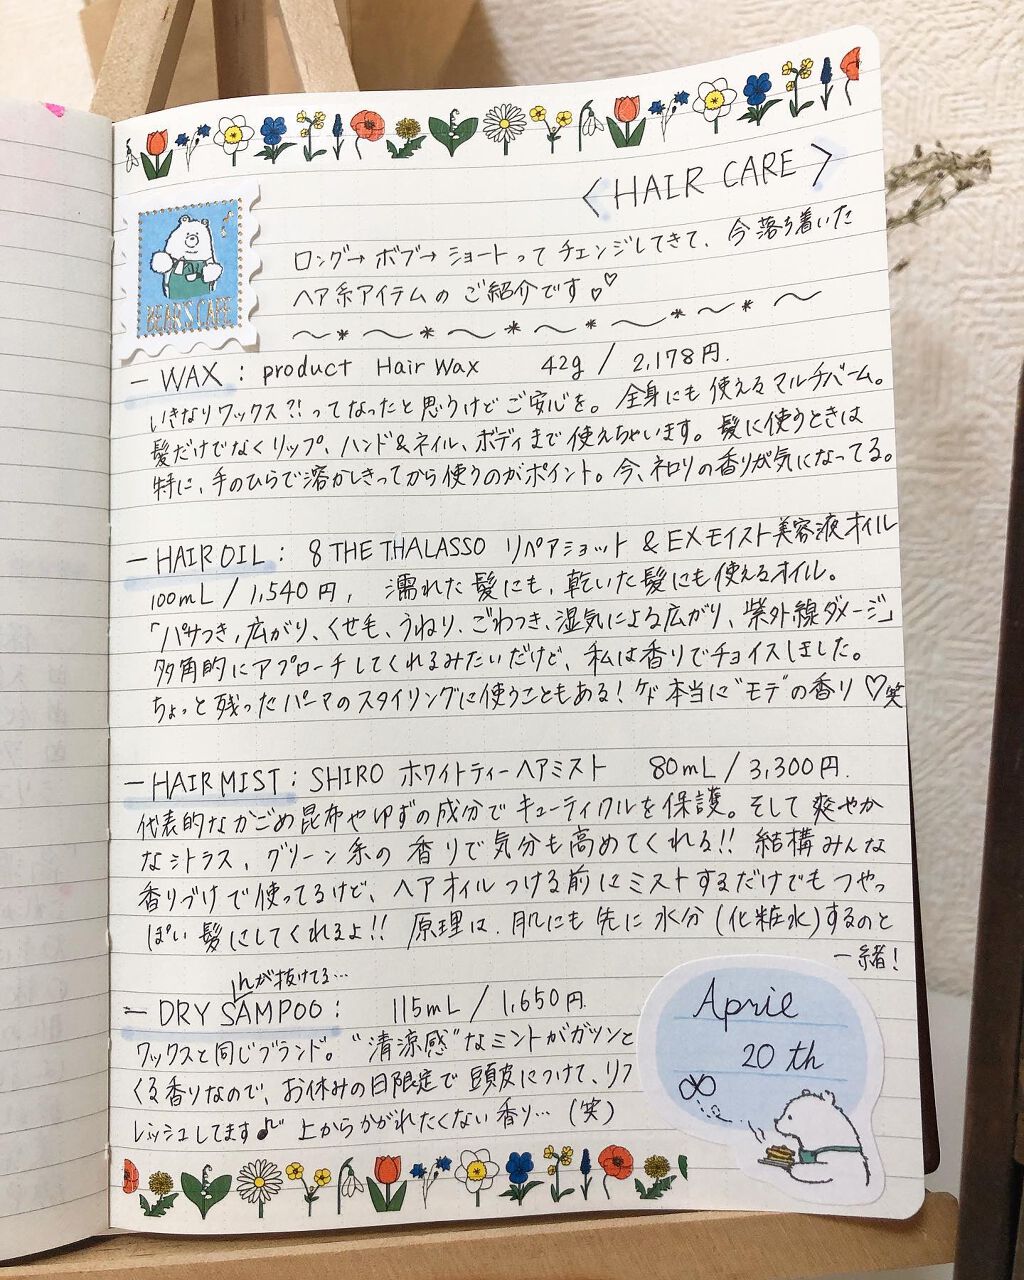 <HAIR CARE>
BEAR'S CAFE
ロング→ボブ→ショートってチェンジしてきて、今落ち着いた
ヘア系アイテムのご紹介です♡♡
〜*〜*〜*〜*〜*〜*〜
- WAX : product Hair Wax 42g / 2,178円.
いきなりワックス?!ってなったと思うけどご安心を。全身にも使えるマルチバーム。
髪だけでなくリップ、ハンド&ネイル、ボディまで使えちゃいます。髪に使うときは
特に、手のひらで溶かしきってから使うのがポイント。今、ネロリの香りが気になってる。
- HAIR OIL : 8 THE THALASSO リペアショット & EXモイスト美容液オイル
100mL / 1,540円, 濡れた髪にも、乾いた髪にも使えるオイル。
「パサつき、広がり、くせ毛、うねり、ごわつき、湿気による広がり、紫外線ダメージ」
多角的にアプローチしてくれるみたいだけど、私は香りでチョイスしました。
ちょっと残ったパーマのスタイリングに使うこともある!ケド本当に"モテ"の香り♡笑
- HAIR MIST : SHIRO ホワイトティーヘアミスト 80mL / 3,300円.
代表的ながごめ昆布やゆずの成分でキューティクルを保護。そして爽やか
なシトラス、グリーン系の香りで気分も高めてくれる!! 結構みんな
香りづけで使ってるけど、ヘアオイルつける前にミストするだけでもつやっ
ぽい髪にしてくれるよ!! 原理は、肌にも先に水分(化粧水)するのと
一緒!
hが抜けてる…
- DRY SAMPOO : 115mL / 1,650円.
ワックスと同じブランド。"清涼感"なミントがガツンと
くる香りなので、お休みの日限定で頭皮につけて、リフ
レッシュしてます♪ 上からかがれたくない香り…(笑)
Aprie
20 th